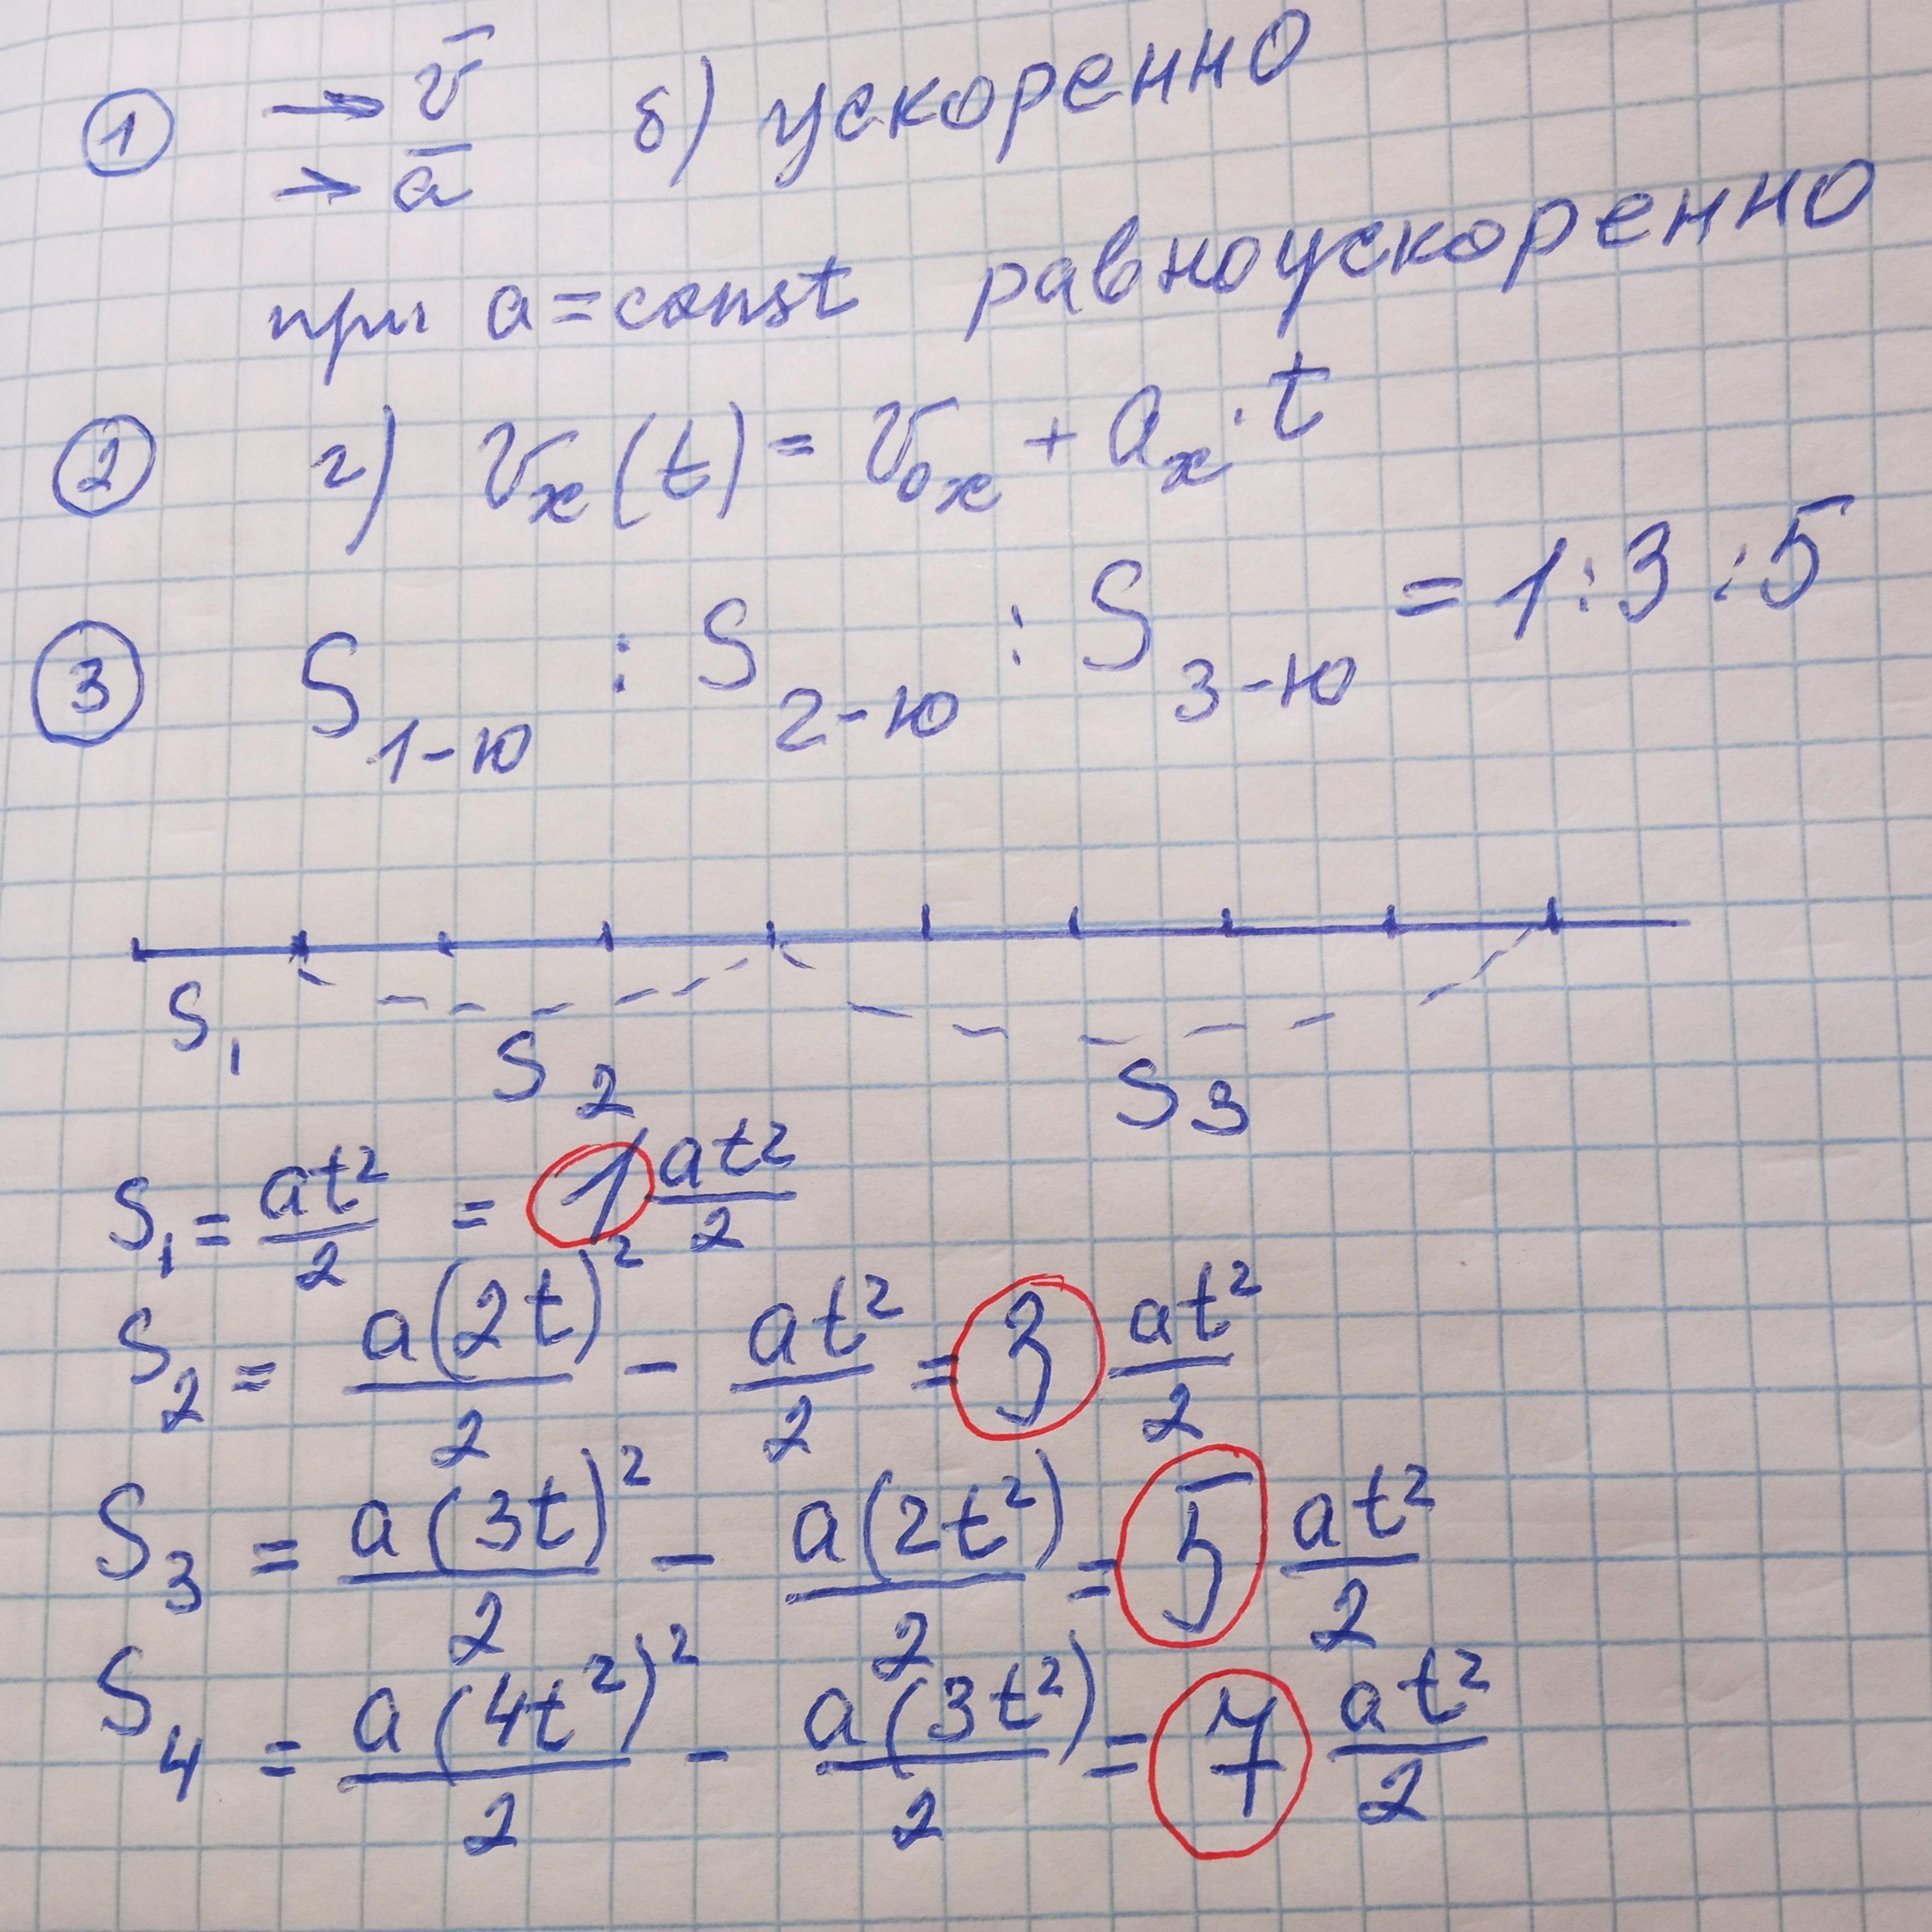 ① → v̅ б) ускоренно
→ a̅
при a = const равноускоренно
② г) vₓ(t) = v₀ₓ + aₓ · t
③ S₁₋ю : S₂₋ю : S₃₋ю = 1 : 3 : 5
S₁ S₂ S₃
S₁ = at²/2 = 1 at²/2
S₂ = a(2t)²/2 - at²/2 = 3 at²/2
S₃ = a(3t)²/2 - a(2t²)/2 = 5 at²/2
S₄ = a(4t²)²/2 - a(3t²)/2 = 7 at²/2